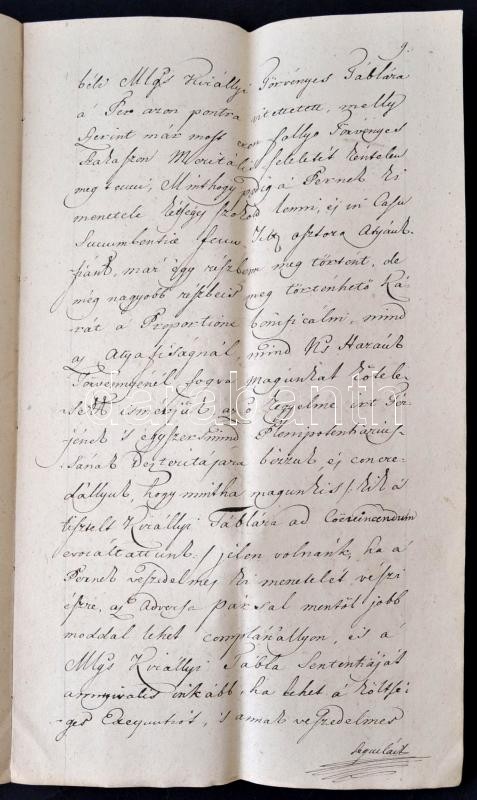 béli Mlgs Királlyi Törvényes Táblára
á Per azon pontra vitettetett, melly
szerint már most ezen follyo Törvényes
Szakaszon feleletét
meg tenni, Minthogy pedig á Pernek ki
menetele kétséges szokot lenni, és in Casu
Succumbentiae Atyánk
fiánk, már egy részben meg történt, de
még nagyobb részbeis meg történhető Ká-
rát á Proportione bonificálni, mind
az Atyafiságnál, mind Ns Hazánk
Törvénnyénél fogva magunkat kötele-
sek ismérjük az ő kegyelme irt Per-
jének is egyszersmind Plenipotentiarius-
sának Dexteritássára bizzuk, és concre-
dállyuk, hogy mintha magunkis /: kik á
tisztelt Királlyi Táblára ad
evocáltattunk :/ jelen volnánk, ha á
Pernek veszedelmes ki menetelét vészi
észre, az Adversa pársal mentöl jobb
moddal lehet complanállyon, és á
Mlgs Királlyi Tábla Sententiáját
annyivalis inkább, ha lehet á költsé-
ges Executiót, 's annak veszedelmes